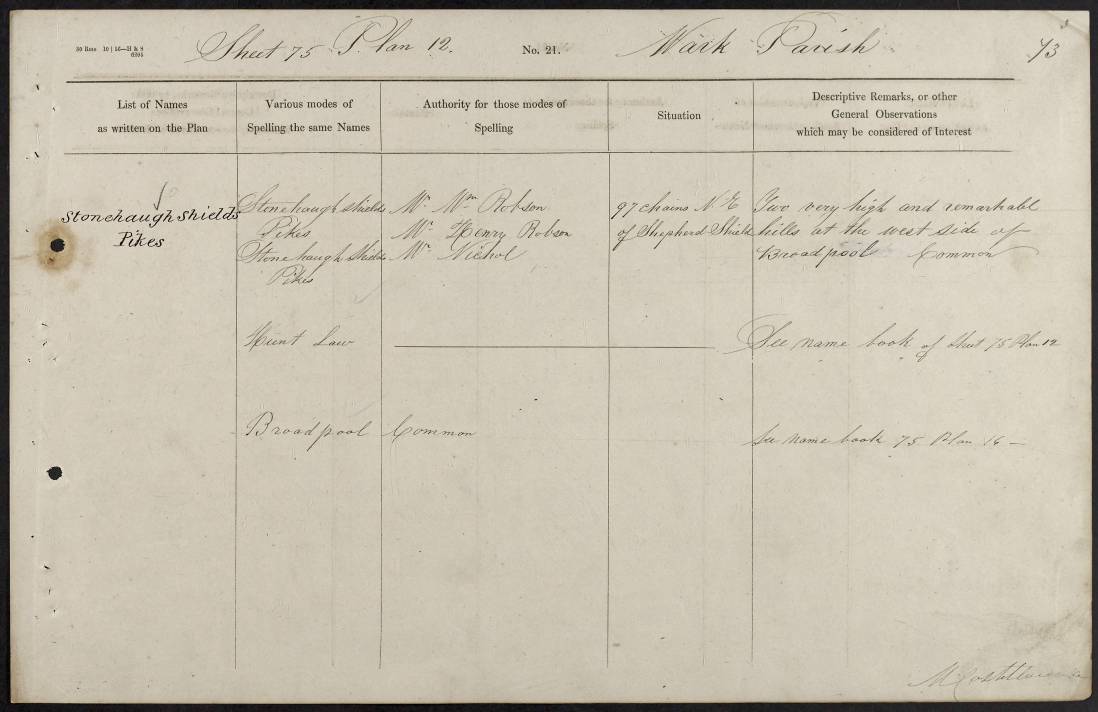 30 Rms 10 | 56—H & S
Sheet 75 Plan 12.
No. 21.
Wark Parish
73
List of Names
as written on the Plan
Various modes of
Spelling the same Names
Authority for those modes of
Spelling
Situation
Descriptive Remarks, or other
General Observations
which may be considered of Interest
Stonehaugh Shields
Pikes
Stonehaugh Shields
Pikes
Stonehaugh Shields
Pikes
Mr. Wm. Robson
Mr. Henry Robson
Mr. Nichol
97 chains N E
of Shepherd Shield
Two very high and remarkabl
hills at the west side of
Broadpool Common
Hunt Law
See name book of Sheet 75 Plan 12
Broadpool Common
See name book 75 Plan 16 —